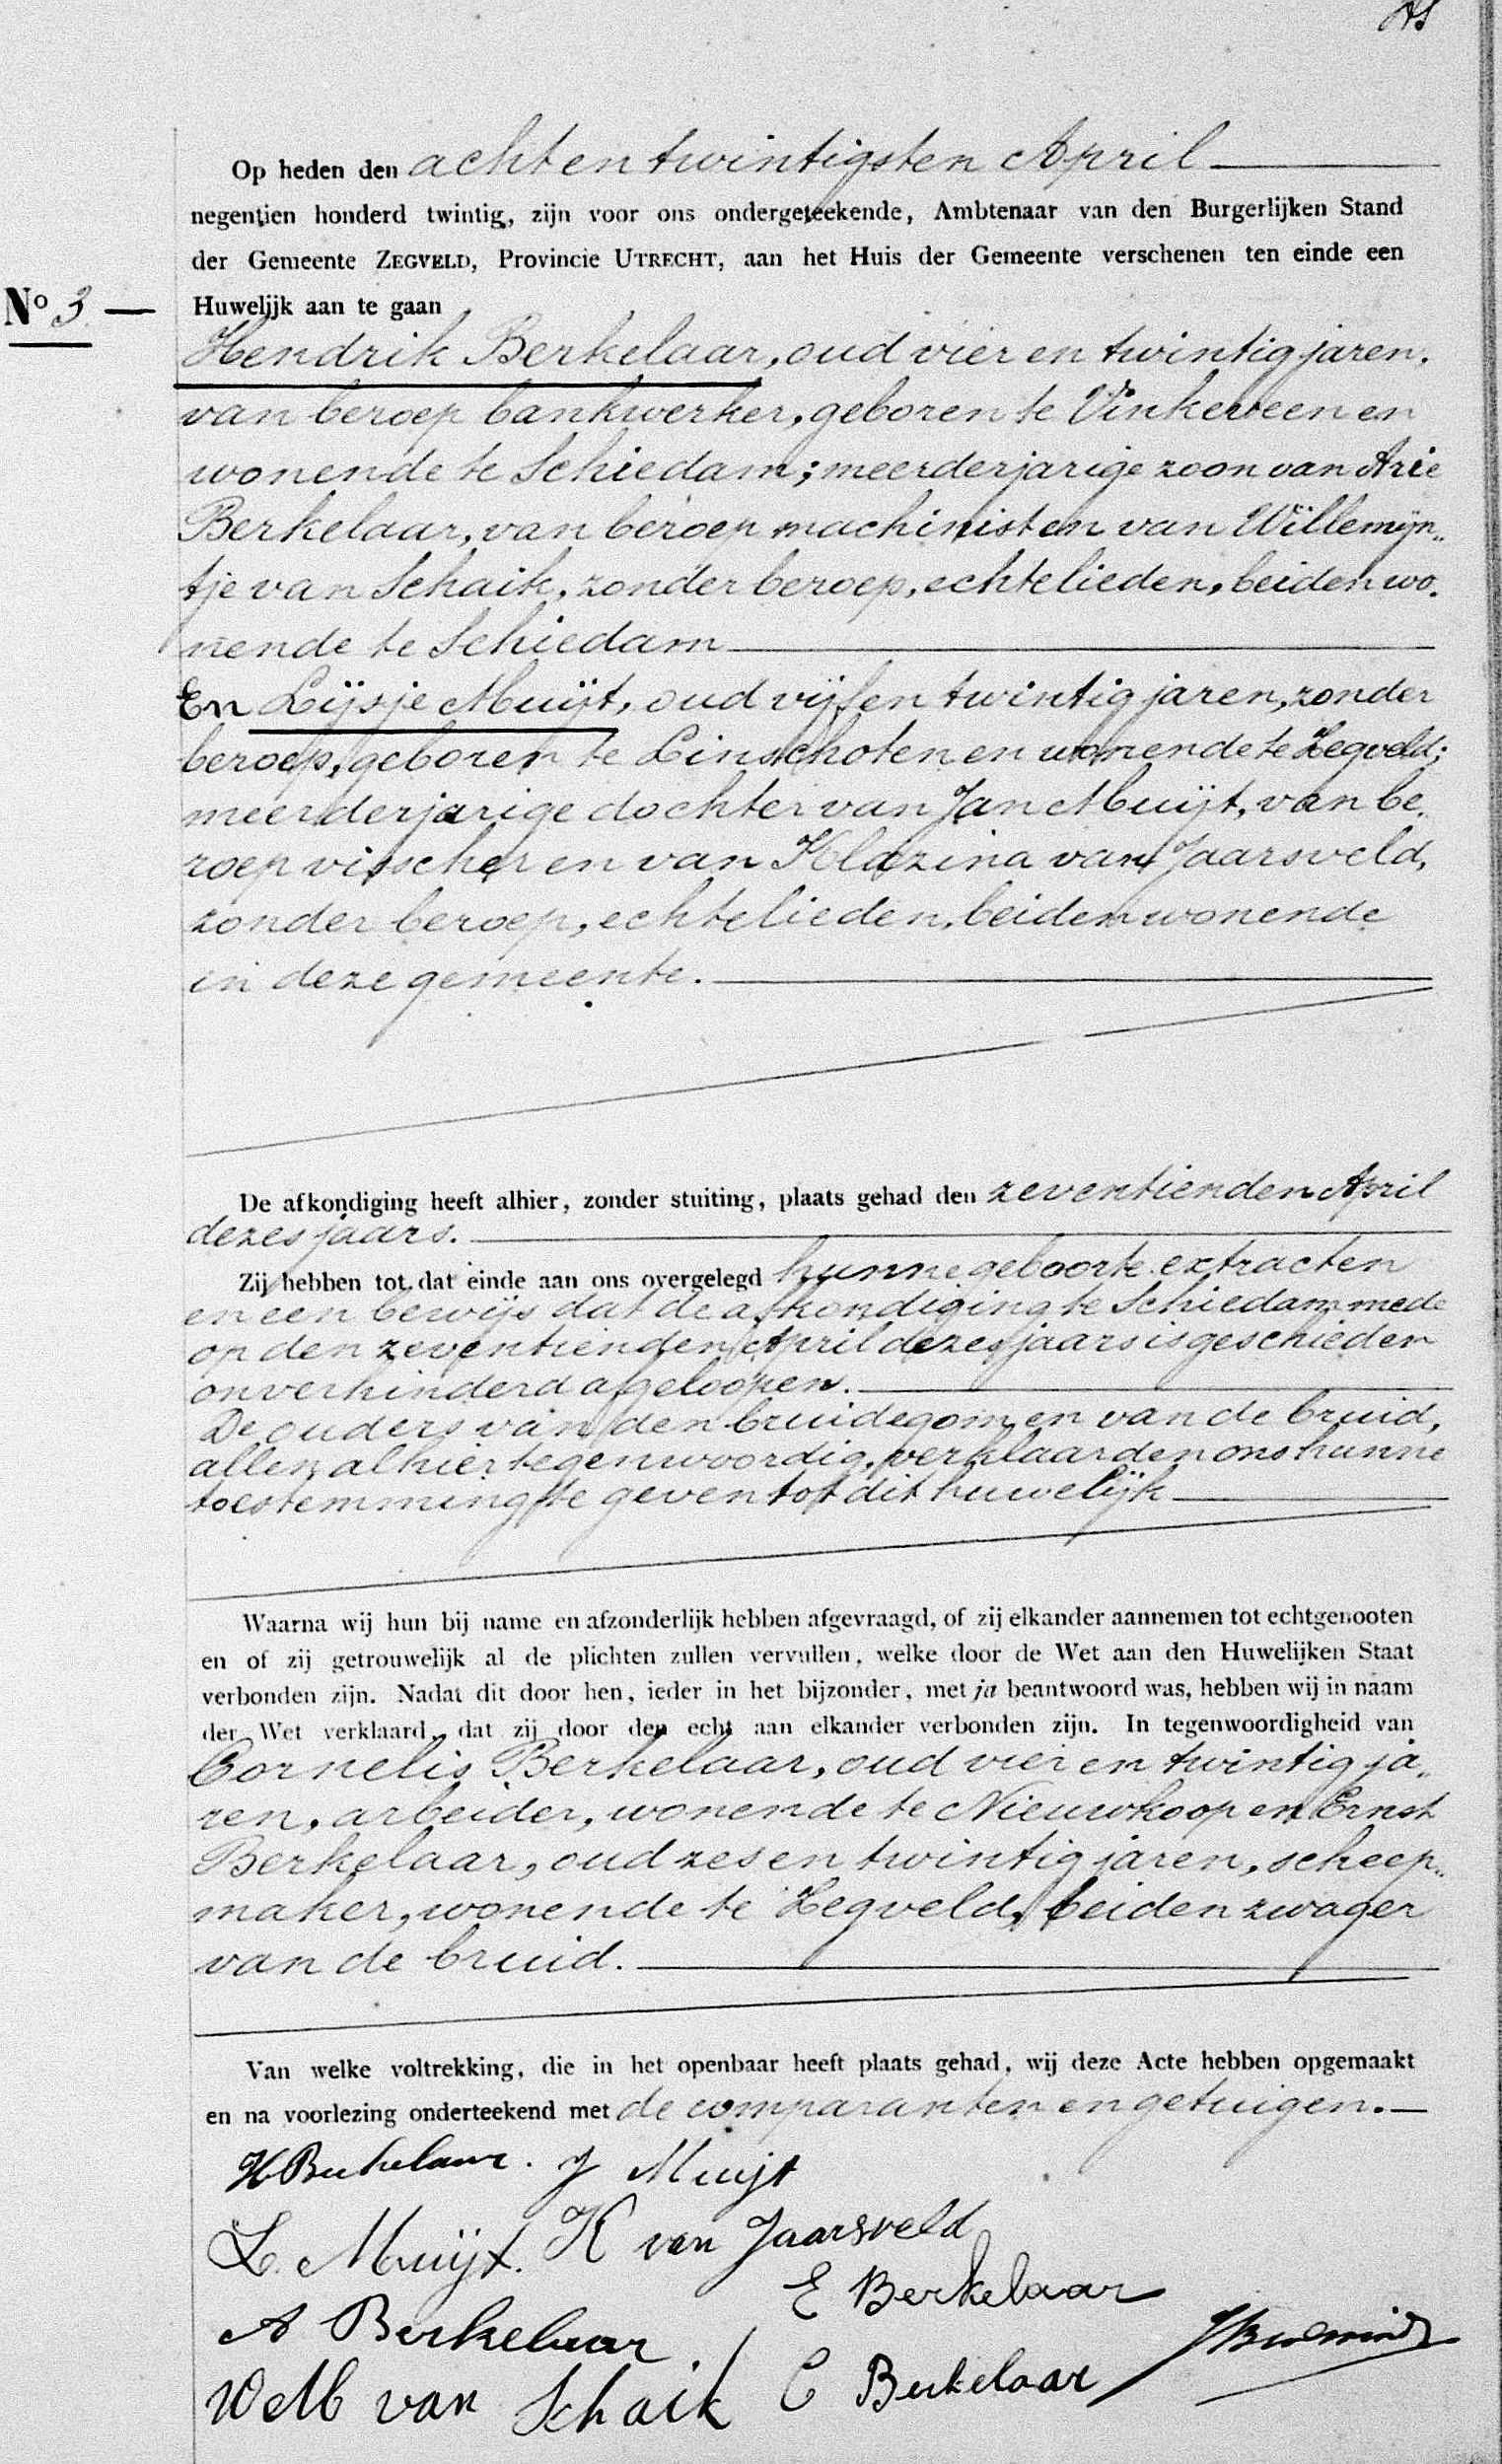 Op heden den acht en twintigsten April
negentien honderd twintig, zijn voor ons ondergeteekende, Ambtenaar van den Burgerlijken Stand
der Gemeente ZEGVELD, Provincie UTRECHT, aan het Huis der Gemeente verschenen ten einde een
No 3 — Huwelijk aan te gaan
Hendrik Berkelaar, oud vier en twintig jaren,
van beroep bankwerker, geboren te Vinkeveen en
wonende te Schiedam; meerderjarige zoon van Arie
Berkelaar, van beroep machinist en van Willemijn„
tje van Schaik, zonder beroep, echtelieden, beiden wo.
nende te Schiedam
En Lijsje Muijt, oud vijf en twintig jaren, zonder
beroep, geboren te Linschoten en wonende te Zegveld;
meerderjarige dochter van Jan Muijt, van be„
roep visscher en van Klazina van Jaarsveld,
zonder beroep, echtelieden, beiden wonende
in deze gemeente.
De afkondiging heeft alhier, zonder stuiting, plaats gehad den zeventienden April
dezes jaars.
Zij hebben tot dat einde aan ons overgelegd hunne geboorte extracten
en een bewijs dat de afkondiging te Schiedam mede
op den zeventienden April dezes jaars is geschied en
onverhinderd afgeloopen.
De ouders van den bruidegom en van de bruid,
allen alhier tegenwoordig, verklaarden ons hunne
toestemming te geven tot dit huwelijk
Waarna wij hun bij name en afzonderlijk hebben afgevraagd, of zij elkander aannemen tot echtgenooten
en of zij getrouwelijk al de plichten zullen vervullen, welke door de Wet aan den Huwelijken Staat
verbonden zijn. Nadat dit door hen, ieder in het bijzonder, met ja beantwoord was, hebben wij in naam
der Wet verklaard, dat zij door den echt aan elkander verbonden zijn. In tegenwoordigheid van
Cornelis Berkelaar, oud vier en twintig ja„
ren, arbeider, wonende te Nieuwkoop en Ernst
Berkelaar, oud zes en twintig jaren, scheep„
maker, wonende te Zegveld, beiden zwager
van de bruid.
Van welke voltrekking, die in het openbaar heeft plaats gehad, wij deze Acte hebben opgemaakt
en na voorlezing onderteekend met de comparanten en getuigen.
H Berkelaar. J Muijt
L. Muijt. K van Jaarsveld
E Berkelaar
A Berkelaar.
W M van Schaik C Berkelaar